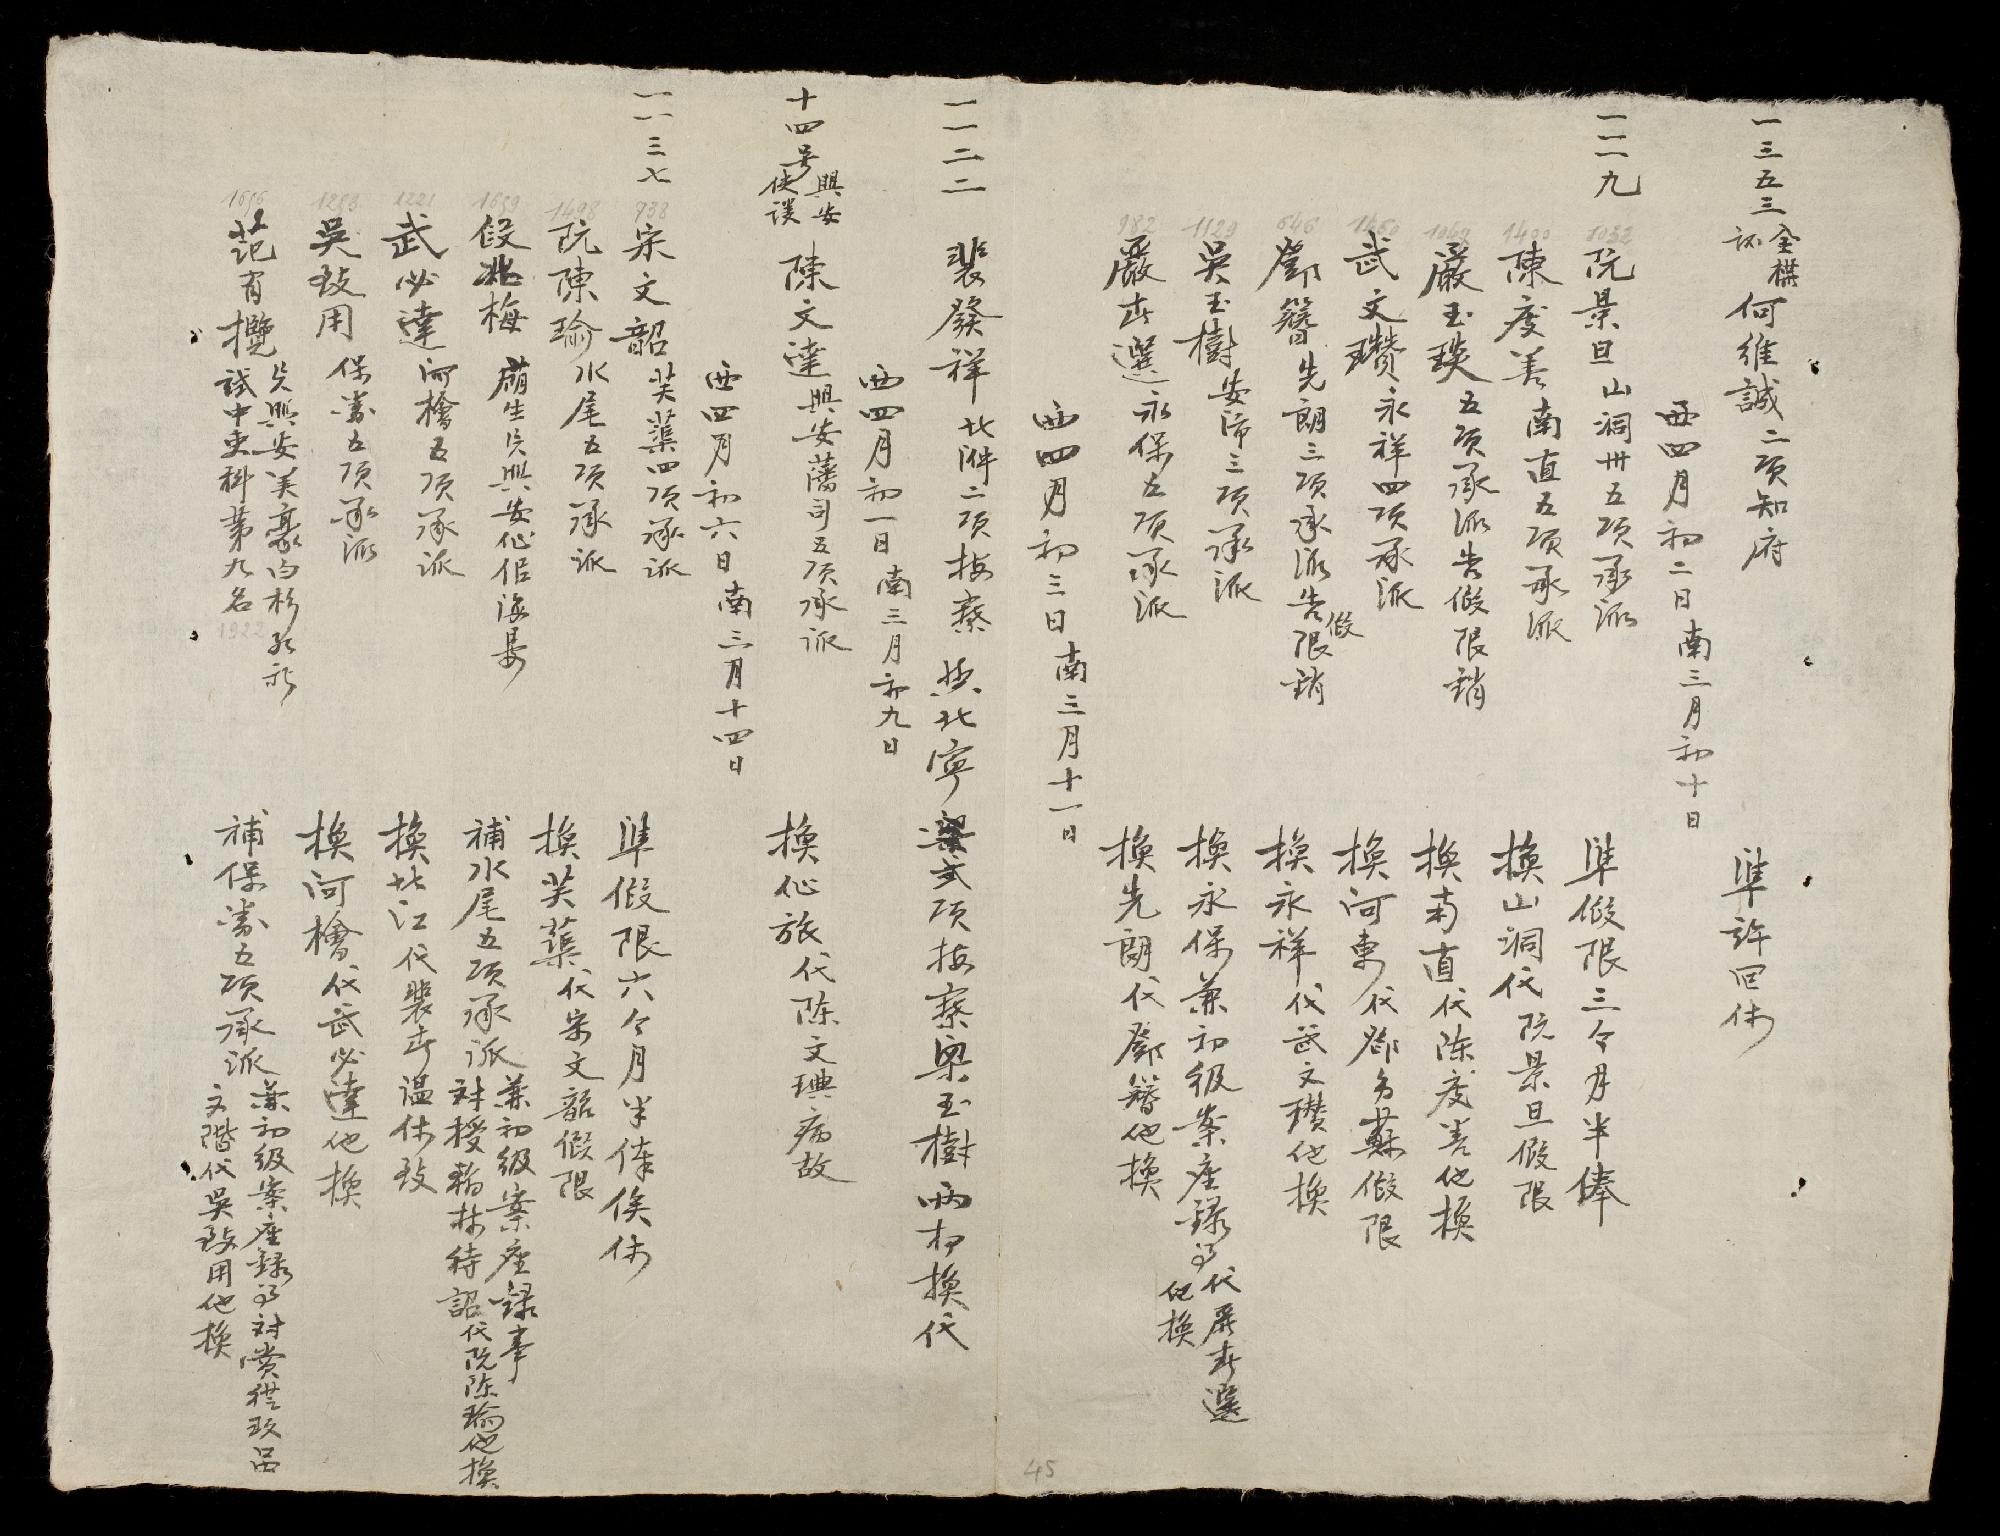 一三五三 全権 何維誠 二項知府 準許回休
西四月初二日南三月初十日
一一一九 1032 阮景旦 山洞卅五項承派 準假限三个月半俸
1400 陳度善 南直五項承派 換山洞代阮景旦假限
1067 嚴玉琰 五項承派告假限銷 換南直代陈度善他換
1460 武文瓚 永祥四項承派 換河東代鄧多蘇假限
646 鄧簪 先朗三項承派告假限銷 換永祥代武文瓚他換
1129 吳玉樹 安沛三項承派 換永保兼初级案座録事代嚴春選他換
982 嚴春選 永保五項承派 換先朗代鄧簪他換
西四月初三日南三月十一日
一一二二 裴發祥 北件二項按察 北寧 弍項按察梁玉樹両相換代
西四月初一日南三月初九日
十四号 興安使 陳文達 興安藩司五項承派 換仙旅代陈文琠病故
西四月初六日南三月十四日
一一三七 938 宋文韶 芙蕖四項承派 準假限六个月半俸俟休
1498 阮陳瑜 水尾五項承派 換芙蕖代宋文韶假限
1659 段兆梅 蔭生 興安仙侶海晏 補水尾五項承派 兼初级案座録事対授翰林待詔代阮陈瑜他換
1221 武必達 河檜五項承派 換北江代裴春温休致
1288 吳致用 保勝五項承派 換河檜代武必達他換
1696 范有攬 興安美豪白杉 試中吏科第九名 1922 補保勝五項承派 兼初级案座録事対賞從玖品文階代吳致用他換
45